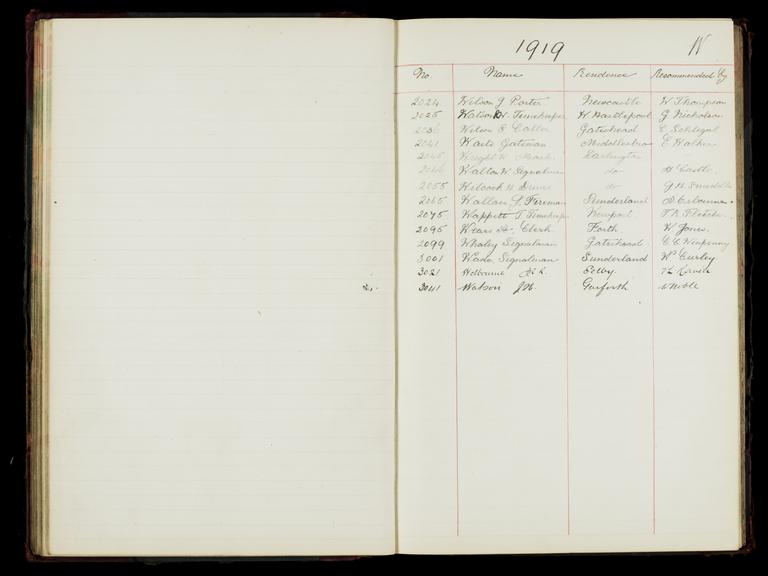 1919 W
No. Name Residence Recommended by
2024 Wilson J Porter Newcastle W Thompson
2025 Watson W. Timekeeper W. Hartlepool G Nicholson
2036 Wilson E Caller Gateshead C Schlegal
2041 Waite Gateman Middlesbro E Walker
Wright W Darlington
2046 Walton W Signalman do H Castle
2055 Wilcock H do
2065 Wallace G Fireman Sunderland
2075 Wappett T Timekeeper Newport
2095 Clerk Forth W Jones.
2099 Whaley Signalman Gateshead
3001 Wade Signalman Sunderland Wm Curley
3021 Welbourne Selby
3041 Watson J W. Garforth W Noble